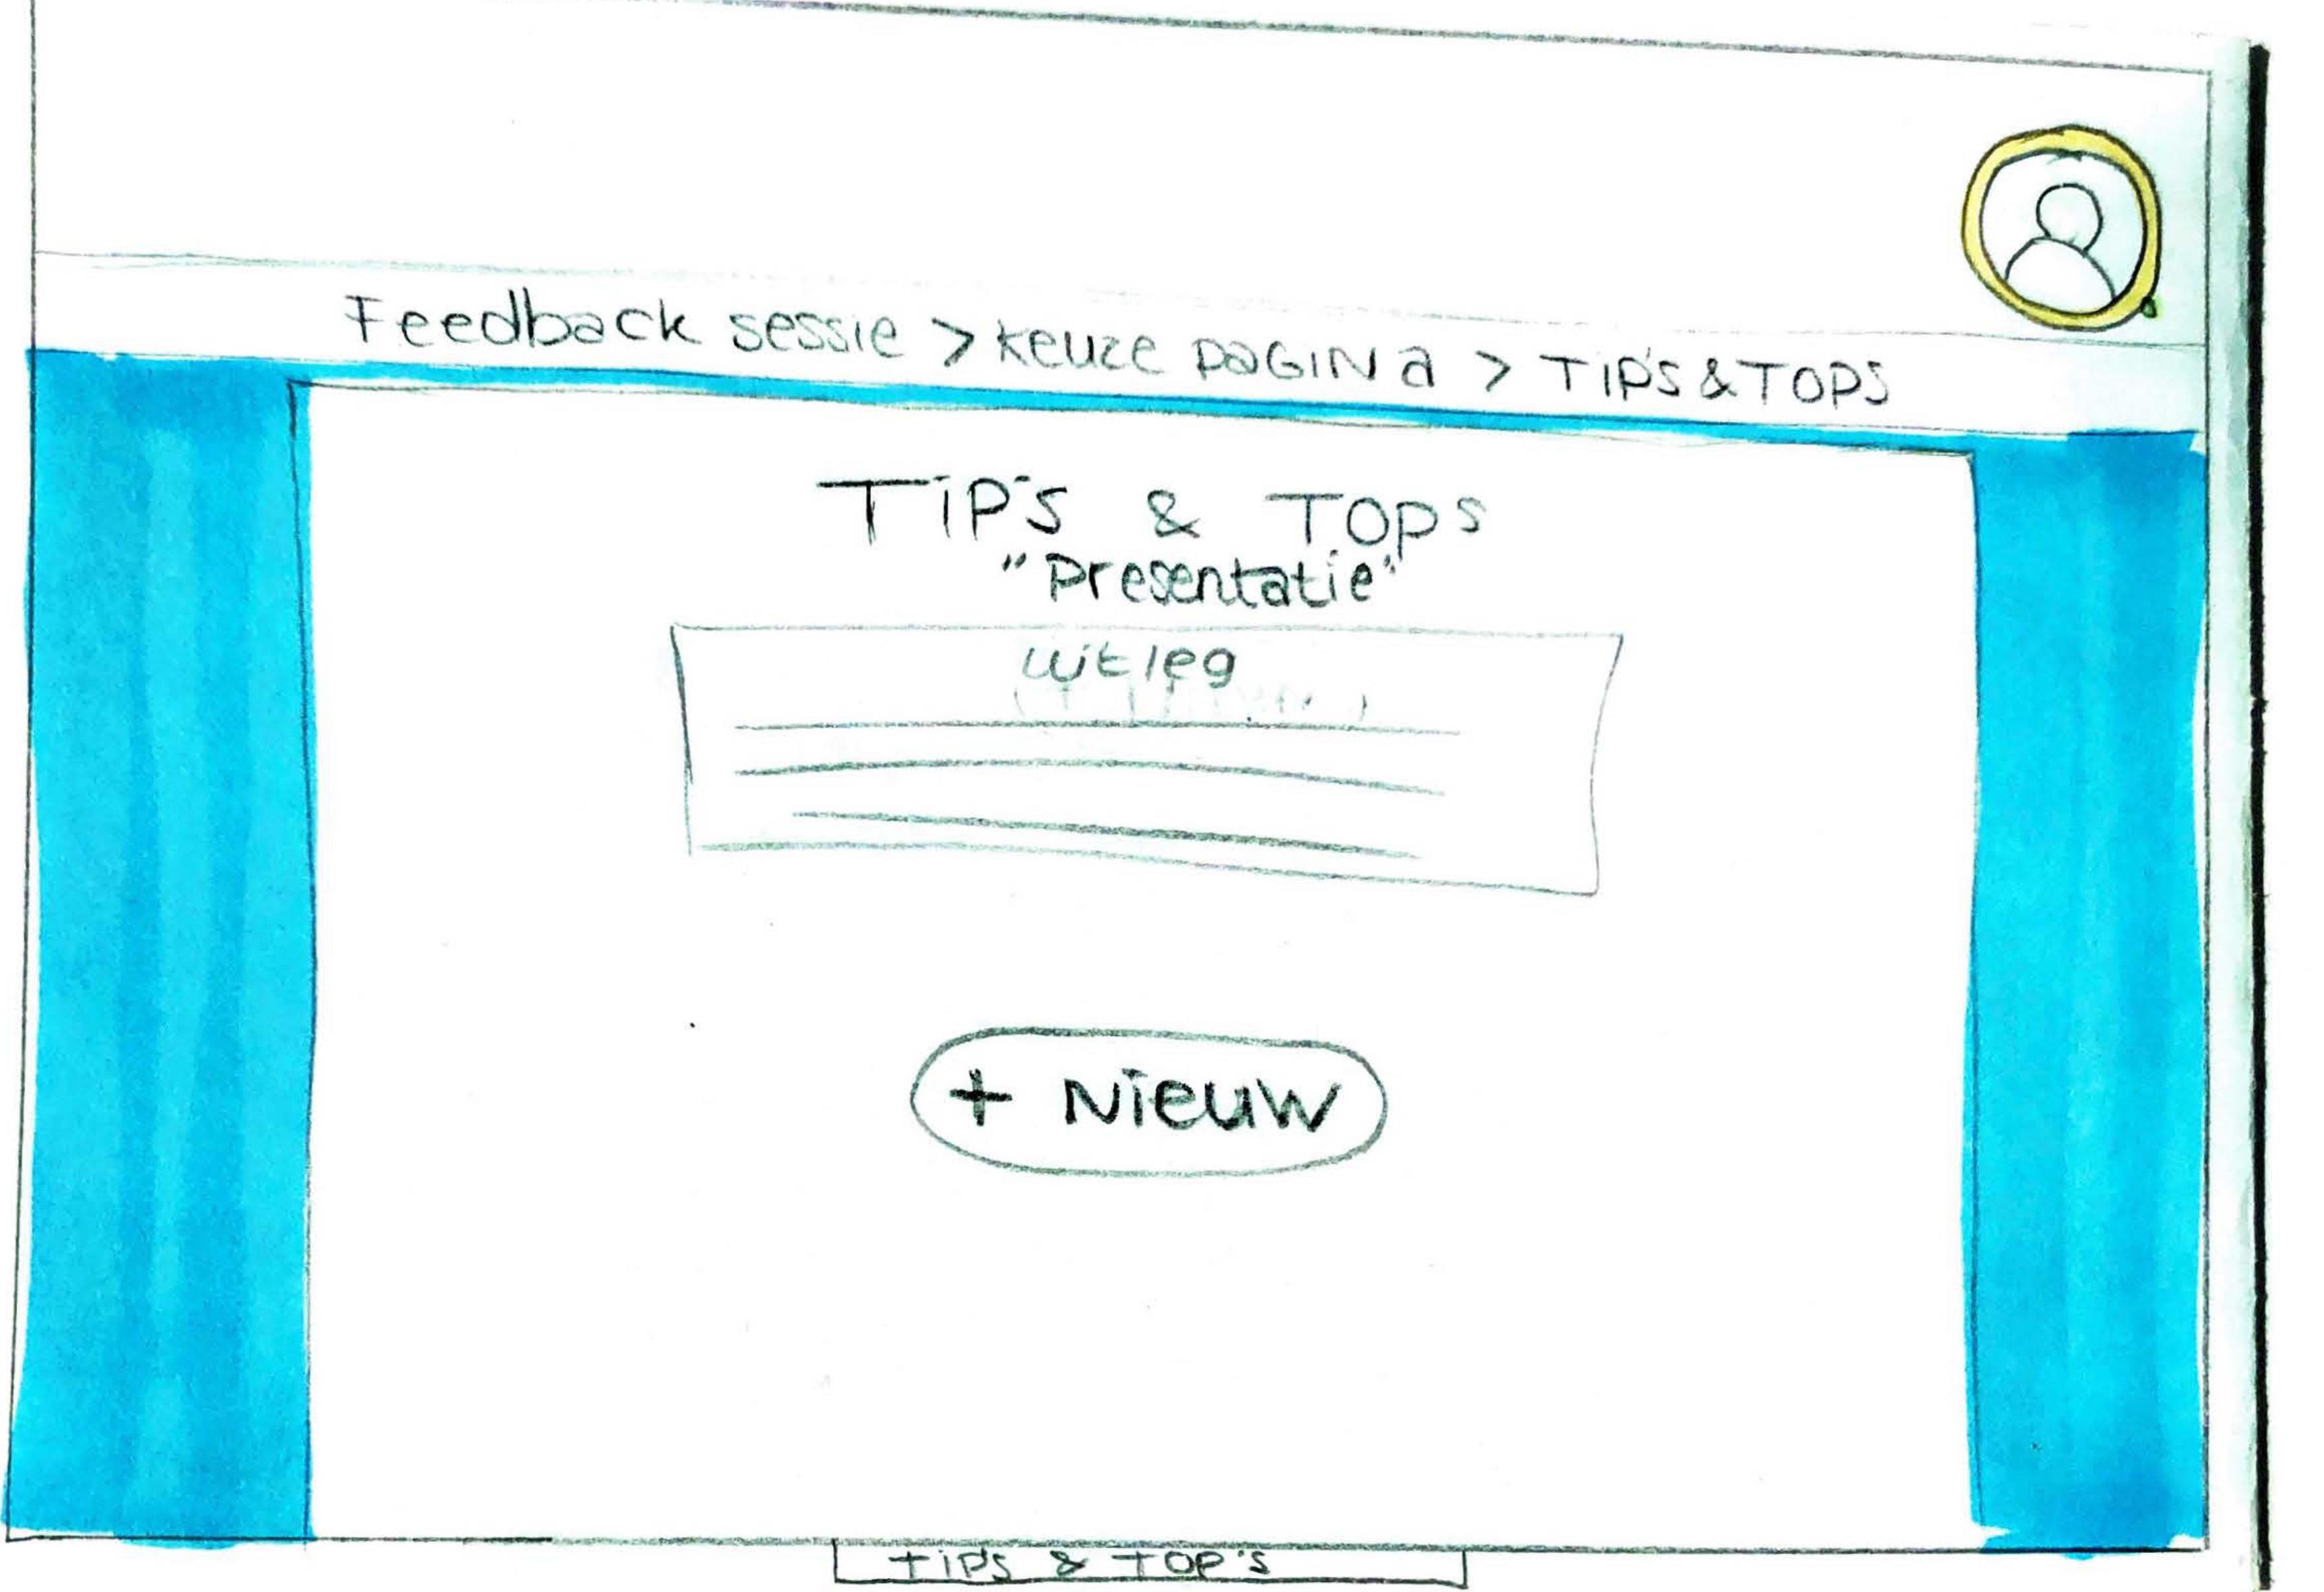 Feedback sessie > keuze pagina > Tip's & Tops
Tip's & Tops
"Presentatie"
uitleg
+ Nieuw
Tip's & Top's